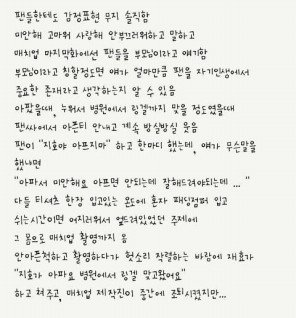 팬들한테도 감정표현 무지 솔직함
미안해 고마워 사랑해 안부끄러워하고 말하고
매치업 마지막화에선 팬들을 부모님이라고 얘기함
부모님이라고 칭할정도면 얘가 얼마만큼 팬을 자기인생에서
중요한 존재라고 생각하는지 알 수 있음
아팠을때, 누워서 병원에서 링겔까지 맞을 정도였을때
팬싸에서 아픈티 안내고 계속 방실방실 웃음
팬이 "지훈아 아프지마" 하고 한마디 했는데, 얘가 무슨말을
했냐면
"아파서 미안해요 아프면 안되는데 잘해드려야되는데 ... "
다들 티셔츠 한장 입고있는 온도에 혼자 패딩점퍼 입고
쉬는시간이면 어지러워서 엎드려있었던 주제에
그 몸으로 매치업 촬영까지 옴
안아픈척하고 촬영하다가 헛소리 작렬하는 바람에 재효가
"지훈가 아파요 병원에서 링겔 맞고왔어요"
하고 쳐주고, 매치업 제작진이 중간에 조퇴시켰지만...